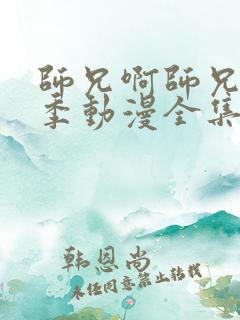 師兄啊師兄
季動漫全集
韩恩尚
未经同意禁止转载